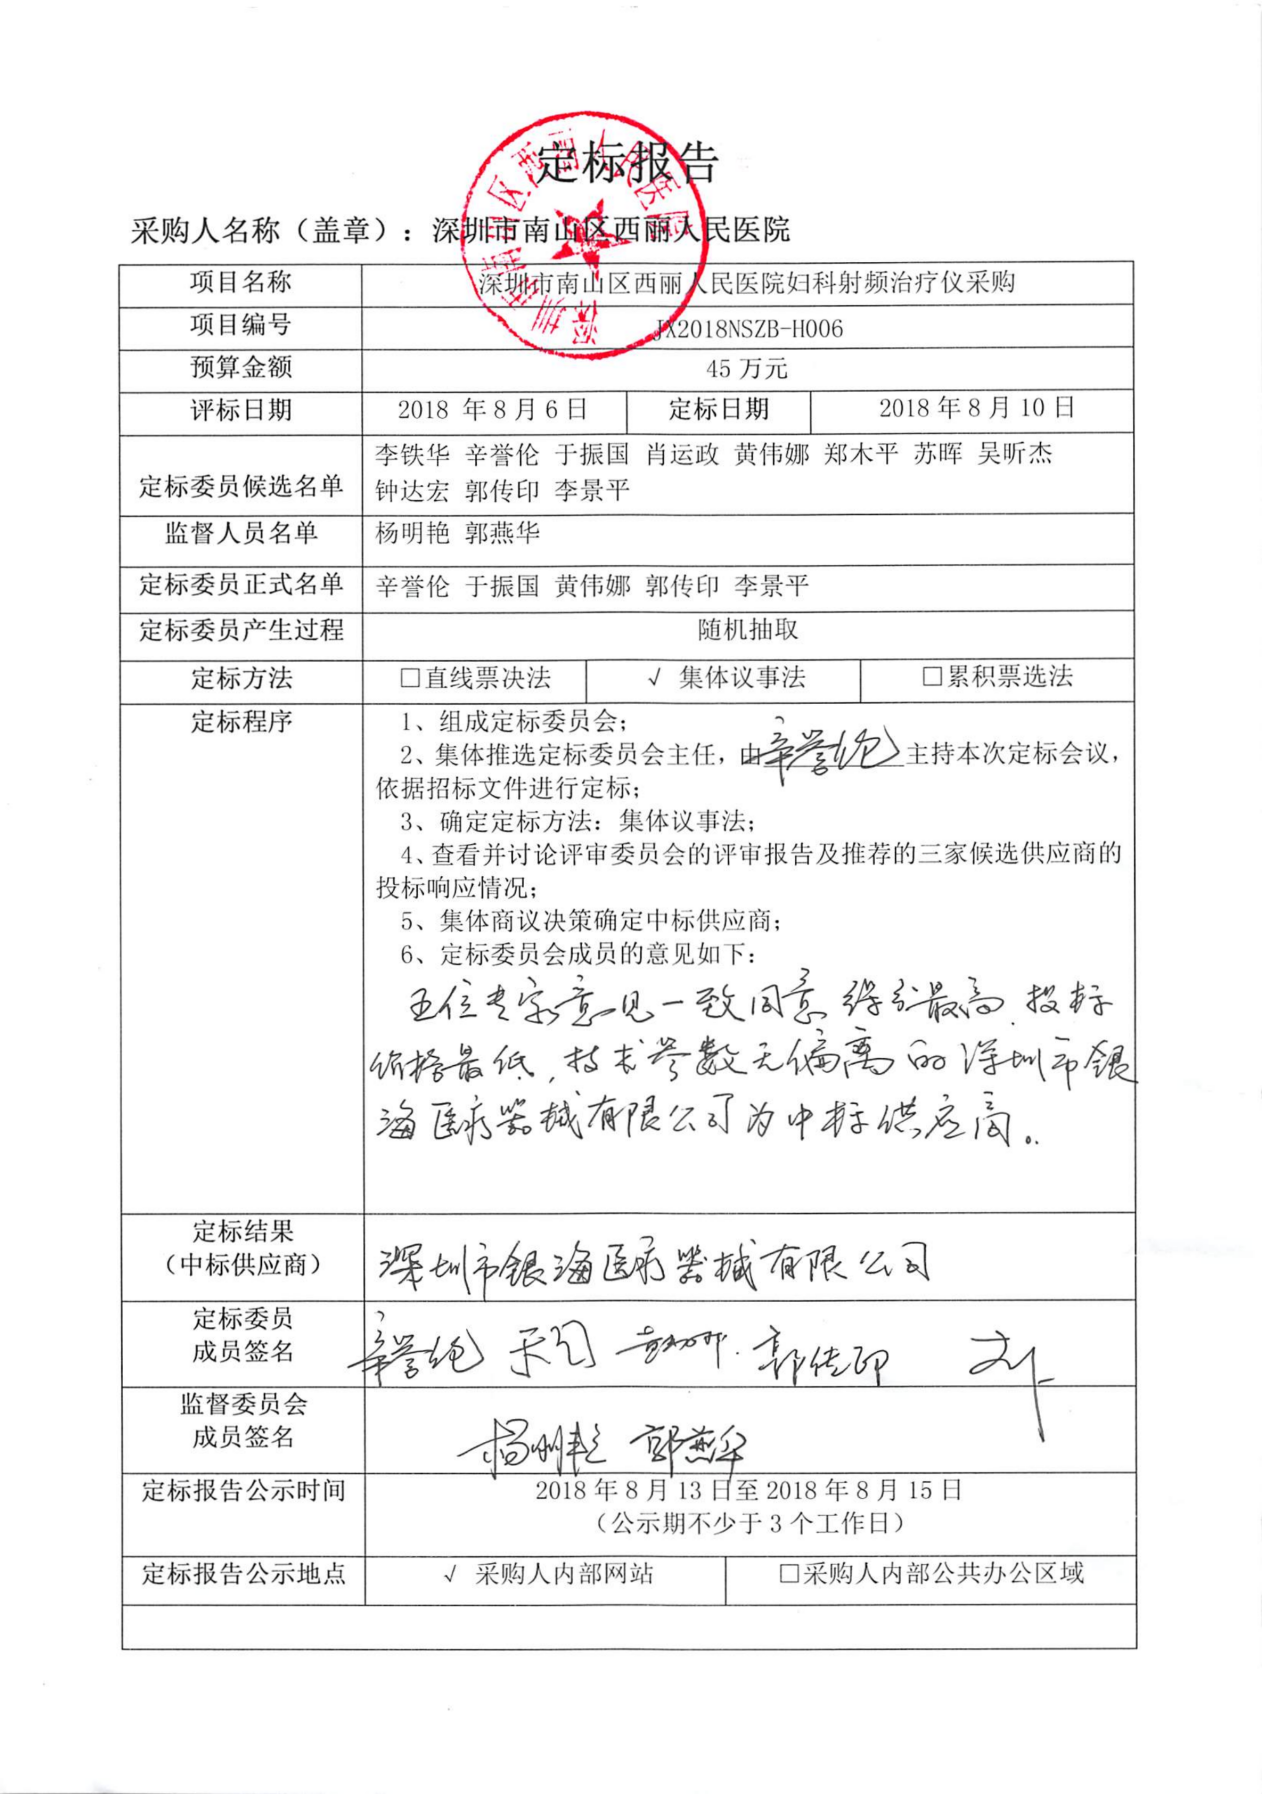 定标报告
采购人名称（盖章）：深圳市南山区西丽人民医院
深圳市南山区西丽人民医院
项目名称 深圳市南山区西丽人民医院妇科射频治疗仪采购
项目编号 JX2018NSZB-H006
预算金额 45 万元
评标日期 2018 年 8 月 6 日 定标日期 2018 年 8 月 10 日
李铁华 辛誉伦 于振国 肖运政 黄伟娜 郑木平 苏晖 吴昕杰
定标委员候选名单 钟达宏 郭传印 李景平
监督人员名单 杨明艳 郭燕华
定标委员正式名单 辛誉伦 于振国 黄伟娜 郭传印 李景平
定标委员产生过程 随机抽取
定标方法 □直线票决法 √ 集体议事法 □累积票选法
定标程序 1、组成定标委员会；
2、集体推选定标委员会主任，由辛誉伦主持本次定标会议，
依据招标文件进行定标；
3、确定定标方法：集体议事法；
4、查看并讨论评审委员会的评审报告及推荐的三家候选供应商的
投标响应情况；
5、集体商议决策确定中标供应商；
6、定标委员会成员的意见如下：
五位专家意见一致同意 综分最高、投标
价格最低，技术参数无偏离的深圳市银
海医疗器械有限公司为中标供应商。
定标结果
（中标供应商） 深圳市银海医疗器械有限公司
定标委员
成员签名 辛誉伦 郭传印
监督委员会
成员签名 杨明艳 郭燕华
定标报告公示时间 2018 年 8 月 13 日至 2018 年 8 月 15 日
（公示期不少于 3 个工作日）
定标报告公示地点 √ 采购人内部网站 □采购人内部公共办公区域